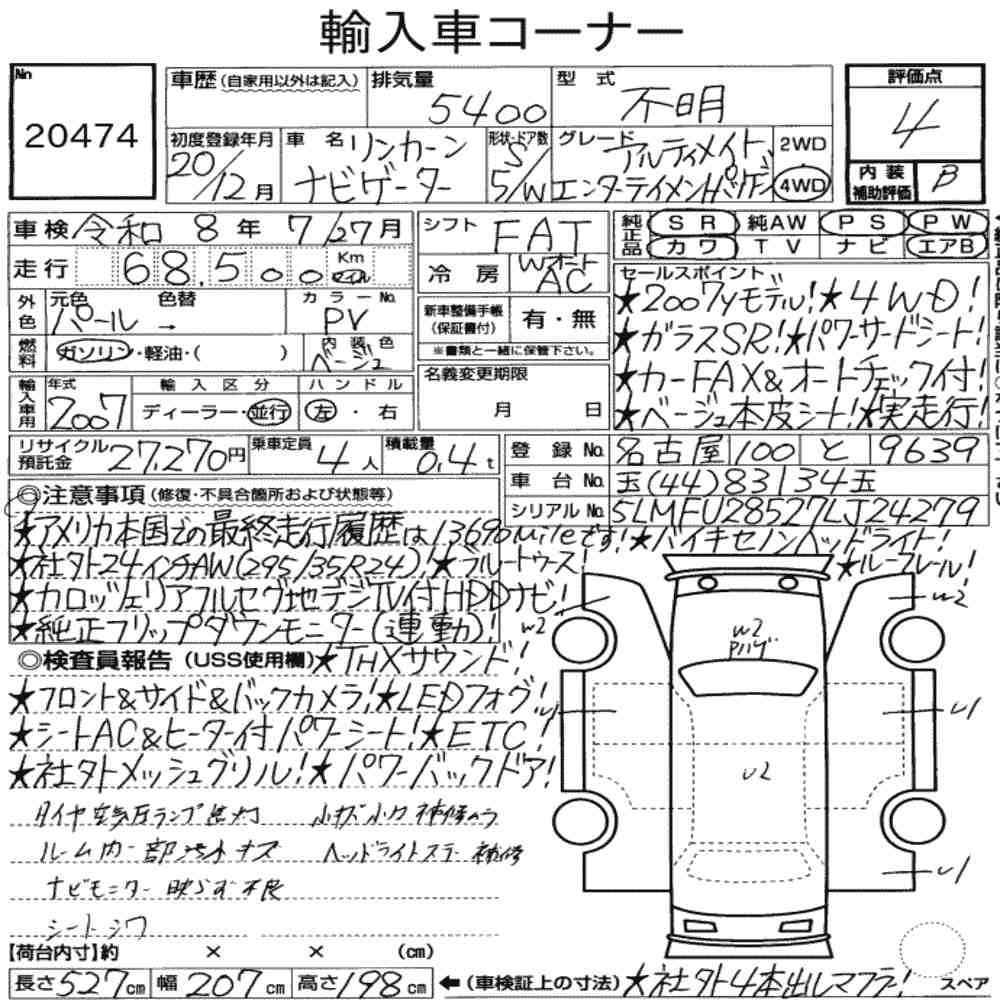 輸入車コーナー
No
20474
車歴(自家用以外は記入)
排気量
5400
型式
不明
評価点
4
初度登録年月
20/12月
車名
リンカーン
ナビゲーター
形状・ドア数
S/
5/W
グレード
アルティメイト
エンターテイメントパッケージ
2WD
4WD
内装
補助評価
B
車検 令和 8年 7/27月
シフト
FAT
純正品
SR 純AW PS PW
カワ TV ナビ エアB
走行 68,500 Km マイル
冷房
Wオート
AC
セールスポイント
★2007yモデル!★4WD!
★ガラスSR!★パワーサードシート!
★カーFAX&オートチェック付!
★ベージュ本皮シート!★実走行!
外色
元色 色替
パール→
カラーNo.
PV
新車整備手帳
(保証書付)
有・無
※書類と一緒に保管下さい。
燃料
ガソリン・軽油・( )
内装色
ベージュ
名義変更期限
月 日
輸入車用
年式
2007
輸入区分
ディーラー・並行
ハンドル
左・右
リサイクル
預託金
27,270円
乗車定員
4人
積載量
0.4t
登録No.
名古屋 100 と 9639
車台No.
玉(44)83134玉
シリアルNo.
5LMFU28527LJ24279
◎注意事項(修復・不具合箇所および状態等)
★アメリカ本国での最終走行履歴は13690mileです!★バイキセノンヘッドライト!
★社外24インチAW(295/35R24)!★ブルートゥース!
★ルーフレール!
★カロッツェリアフルセグ地デジTV付HDDナビ!
★純正フリップダウンモニター(連動)!
◎検査員報告(USS使用欄)★THXサウンド!
★フロント&サイド&バックカメラ!★LEDフォグ!
★シートAC&ヒーター付パワーシート!★ETC!
★社外メッシュグリル!★パワーバックドア!
タイヤ空気圧ランプ点灯
小キズ小凹補修ムラ
ルーム内一部汚れキズ
ヘッドライトステー補修
ナビモニター映らず不良
シートシワ
W2
W2
W2
Pハゲ
U1
U1
U2
U1
【荷台内寸】約 × × (cm)
長さ527cm 幅207cm 高さ198cm
←(車検証上の寸法)★社外4本出しマフラー!
スペア